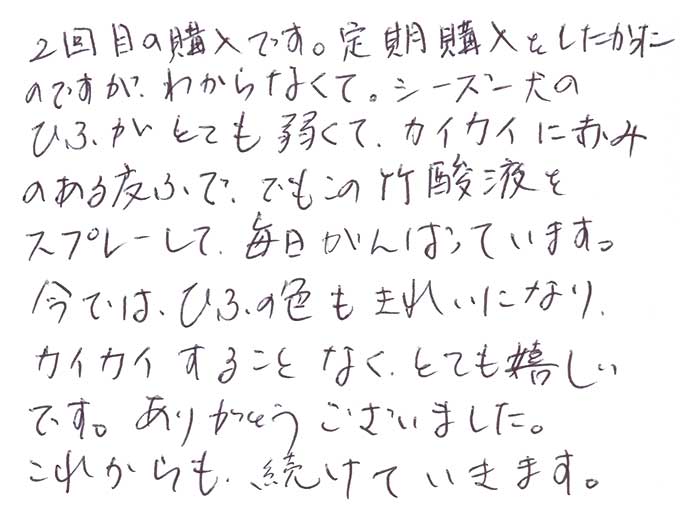 2回目の購入です。定期購入をしたかった
のですが、わからなくて。シーズー犬の
ひふがとても弱くて、カイカイに赤み
のある皮ふで、でもこの竹酸液を
スプレーして、毎日がんばっています。
今では、ひふの色もきれいになり、
カイカイすることなく、とても嬉しい
です。ありがとうございました。
これからも、続けていきます。